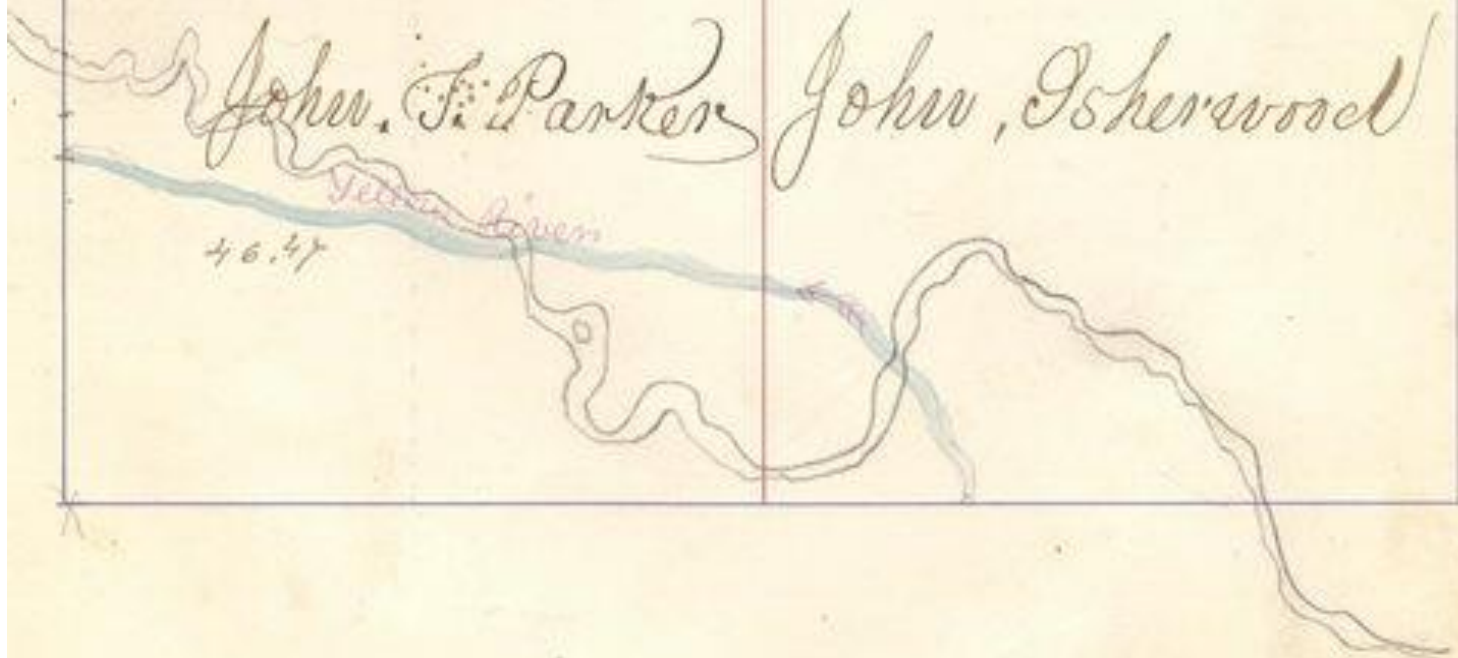 John, F. Parker John, Isherwood
River
46.47